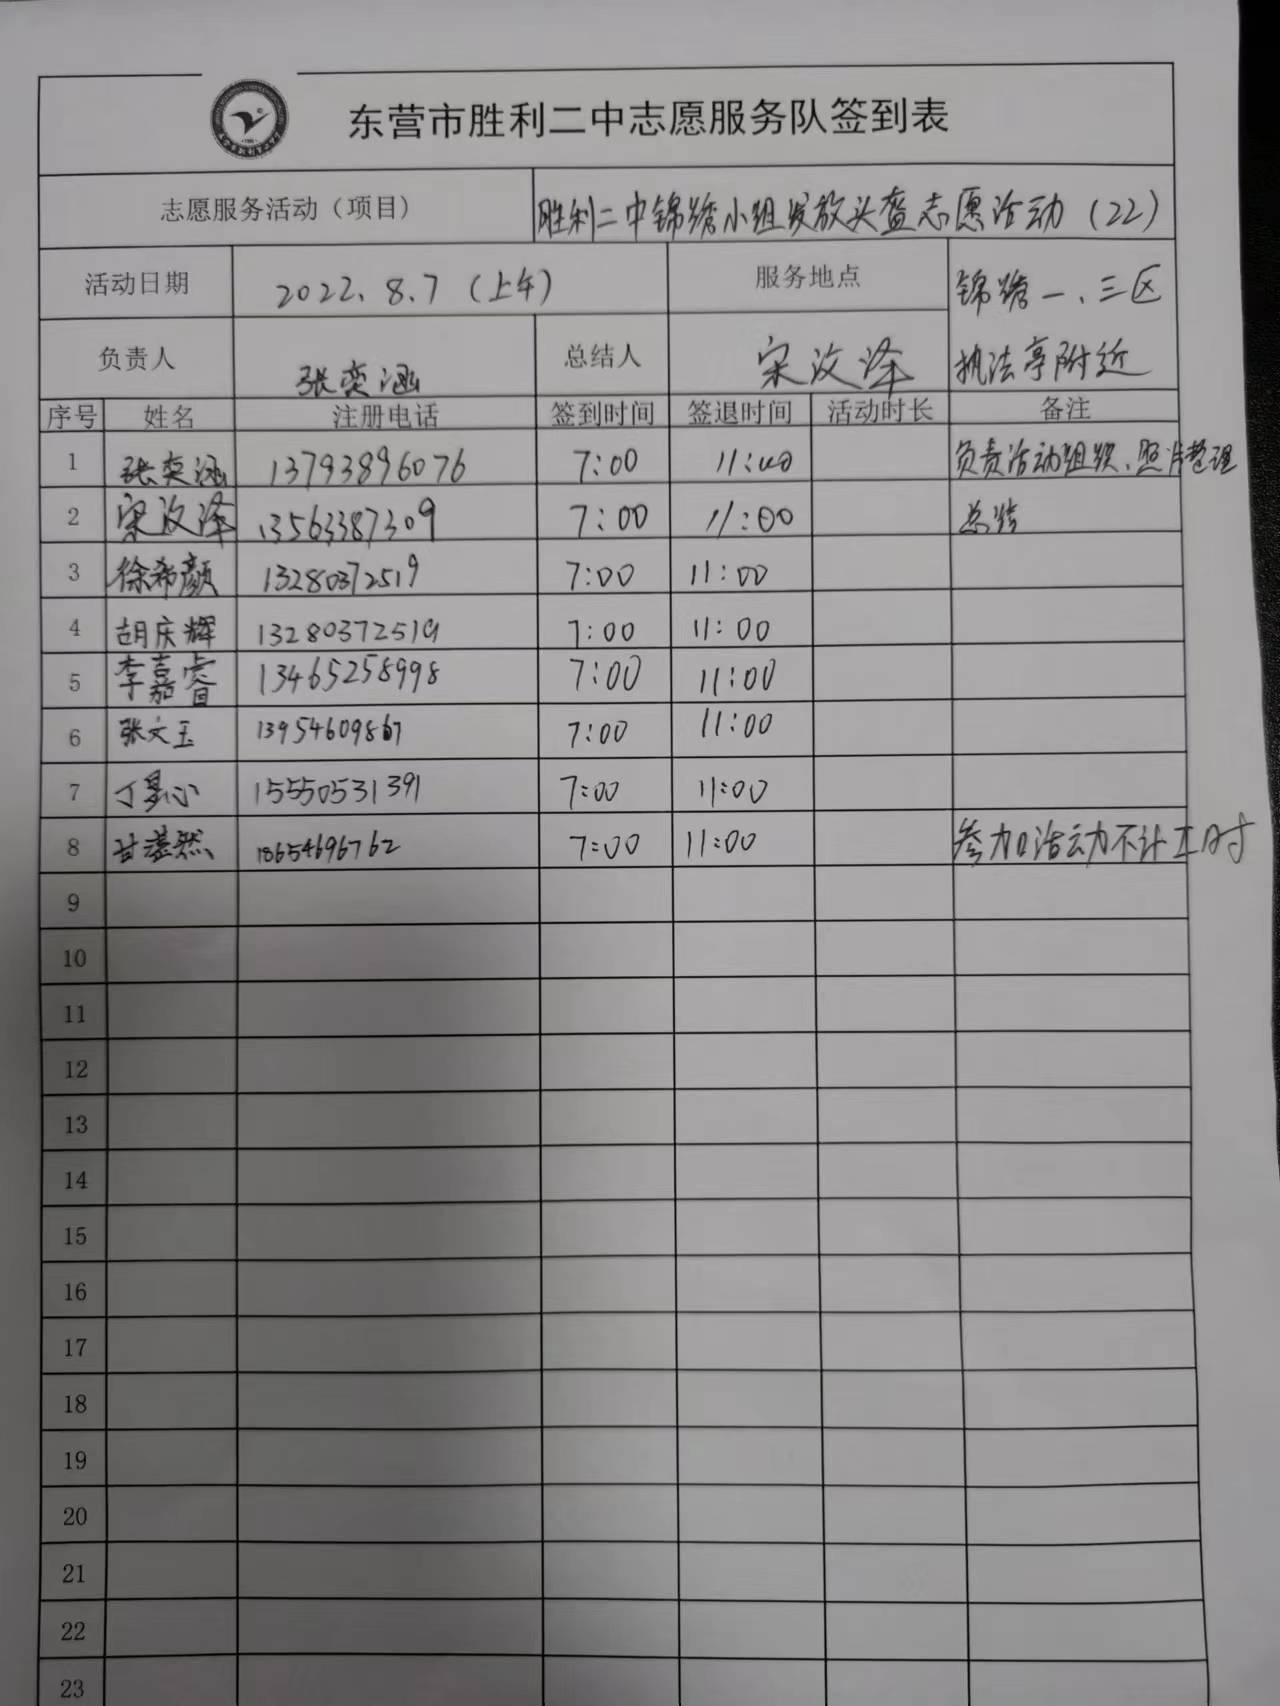 东营市胜利二中志愿服务队签到表
志愿服务活动（项目） 胜利二中锦绣小组发放头盔志愿活动（22）
活动日期 2022.8.7（上午） 服务地点 锦绣一、三区
负责人 张奕涵 总结人 宋汶泽 执法亭附近
序号 姓名 注册电话 签到时间 签退时间 活动时长 备注
1 张奕涵 13793896076 7:00 11:00 负责活动组织、照片整理
2 宋汶泽 13563387309 7:00 11:00 总结
3 徐希颜 13280372519 7:00 11:00
4 胡庆辉 13280372519 7:00 11:00
5 李嘉睿 13465258998 7:00 11:00
6 张文玉 13954609867 7:00 11:00
7 丁心 15550531391 7:00 11:00
8 甘然 18654696762 7:00 11:00 参加活动不计工时
9
10
11
12
13
14
15
16
17
18
19
20
21
22
23